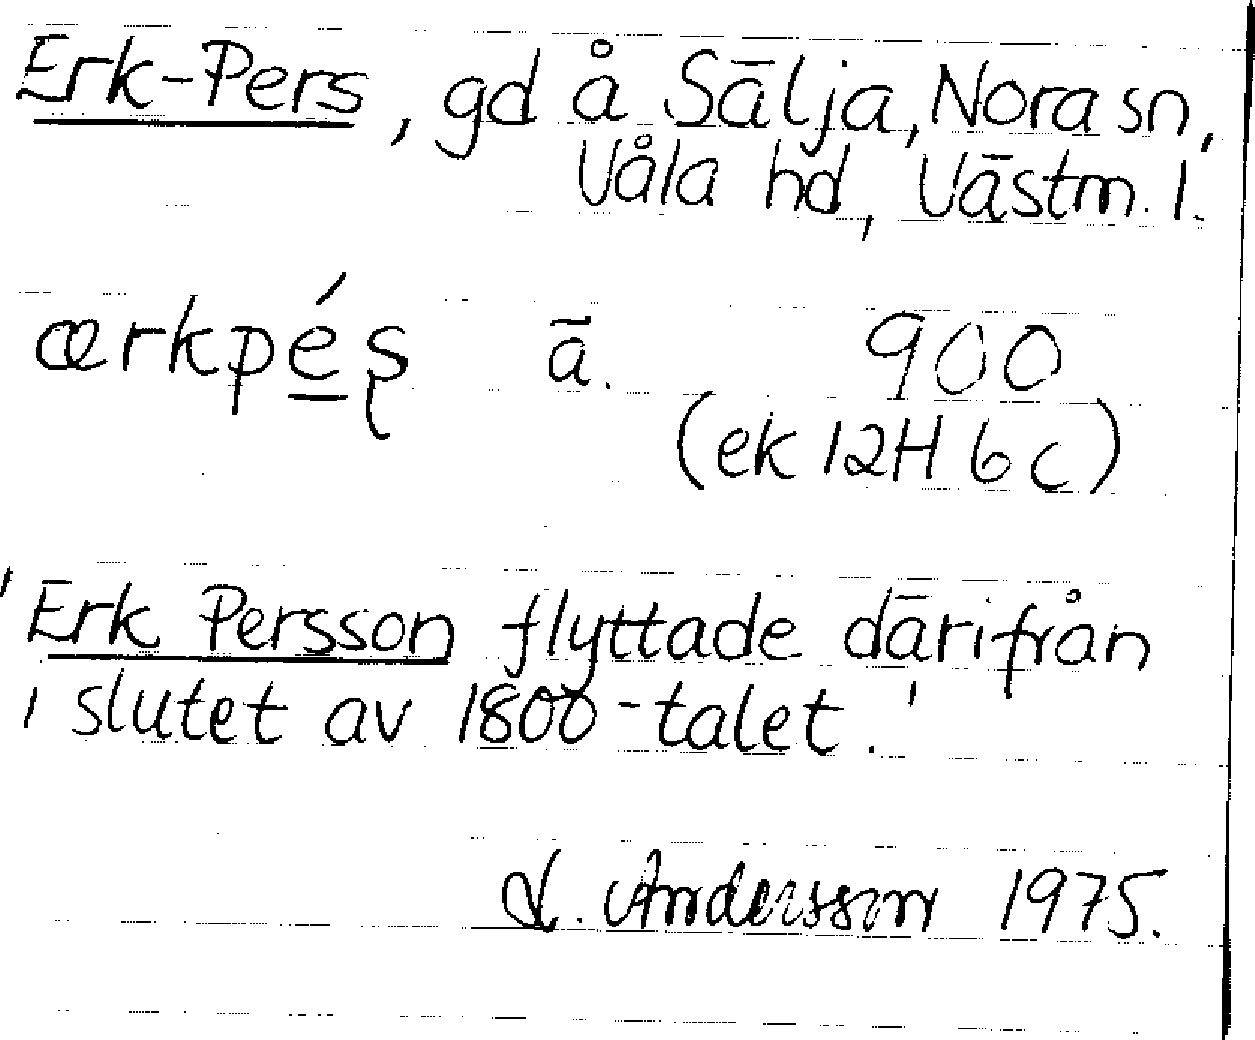 Erk-Pers, gd å Sälja, Nora sn,
Våla hd, Västm. l.
ærkpéʂ ä. 900
(ek 12H 6c)
'Erk Persson flyttade därifrån
i slutet av 1800-talet.'
L. Andersson 1975.